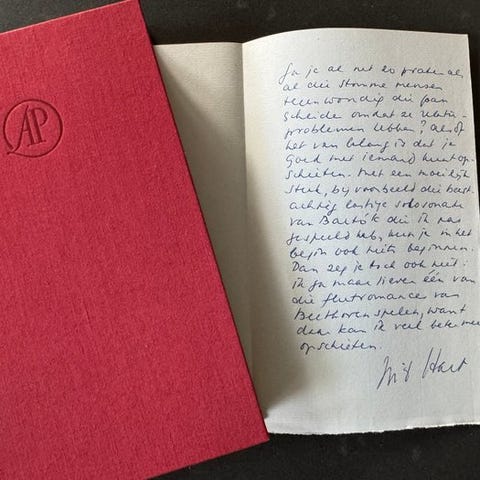 AP
Ga je al net zo praten als
al die stomme mensen
tegenwoordig die gaan
scheiden omdat ze relatie-
problemen hebben? Alsof
het van belang is dat je
goed met iemand kunt op-
schieten. Met een moeilijk
stuk, bij voorbeeld die
lastige solosonate
van Bartók die ik pas
gespeeld heb, kun je in het
begin ook niets beginnen.
Dan zeg je toch ook niet:
ik ga maar liever één van
die flutromances van
Beethoven spelen, want
daar kan ik veel beter mee
opschieten.
Hart